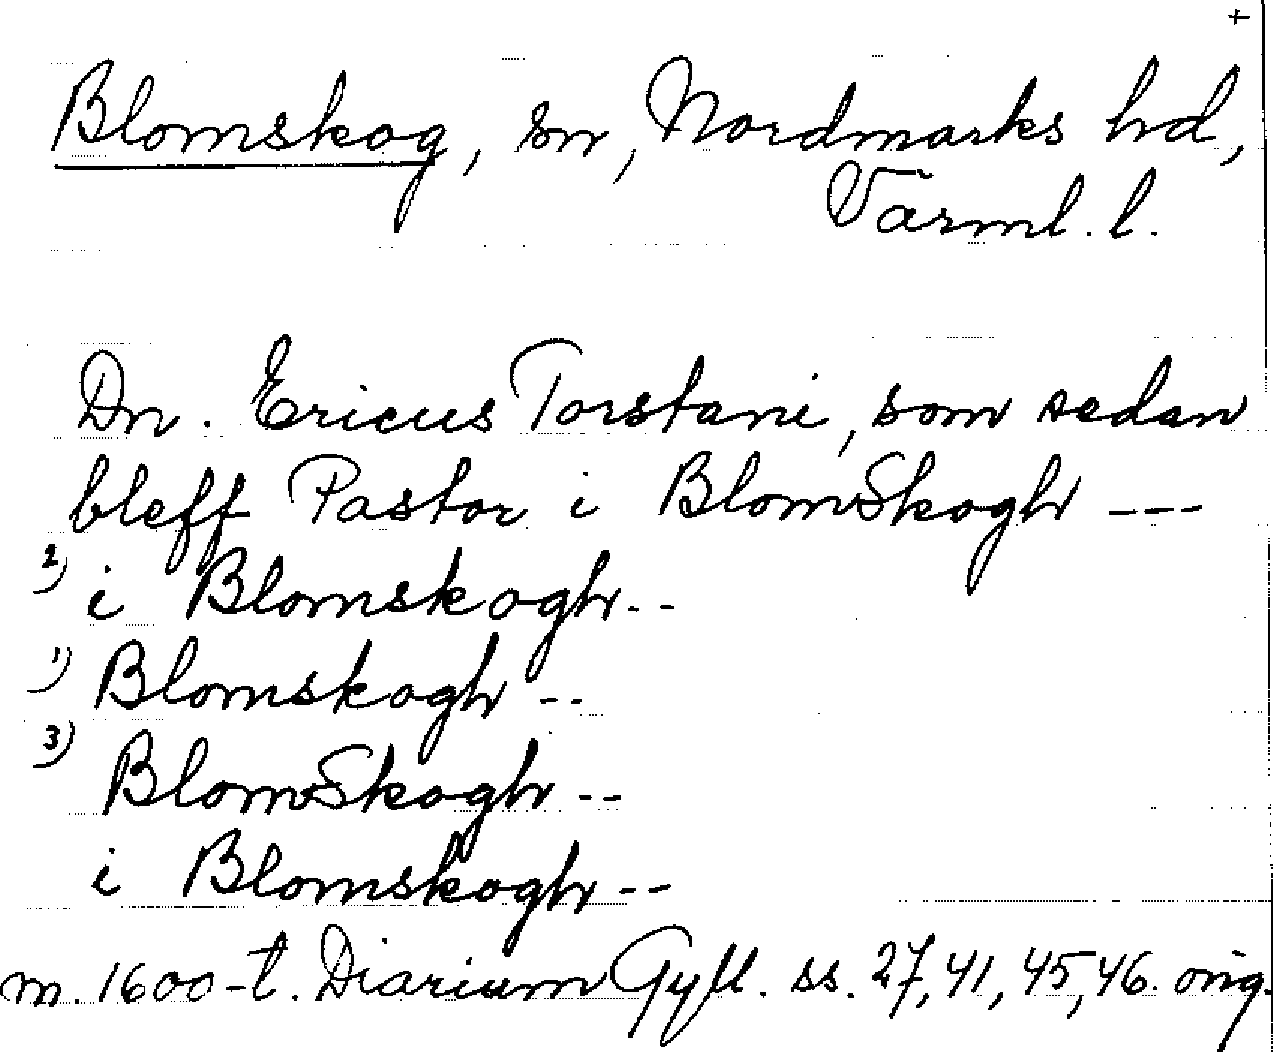 +
Blomskog, sn, Nordmarks hd,
Värml. l.
Dn. Ericus Torstani, som sedan
bleff Pastor i BlomSkogh ---
2) i Blomskogh --
1) Blomskogh --
3) BlomSkogh --
i Blomskogh --
m. 1600-t. Diarium Gyll. ss. 27, 41, 45, 46. orig.